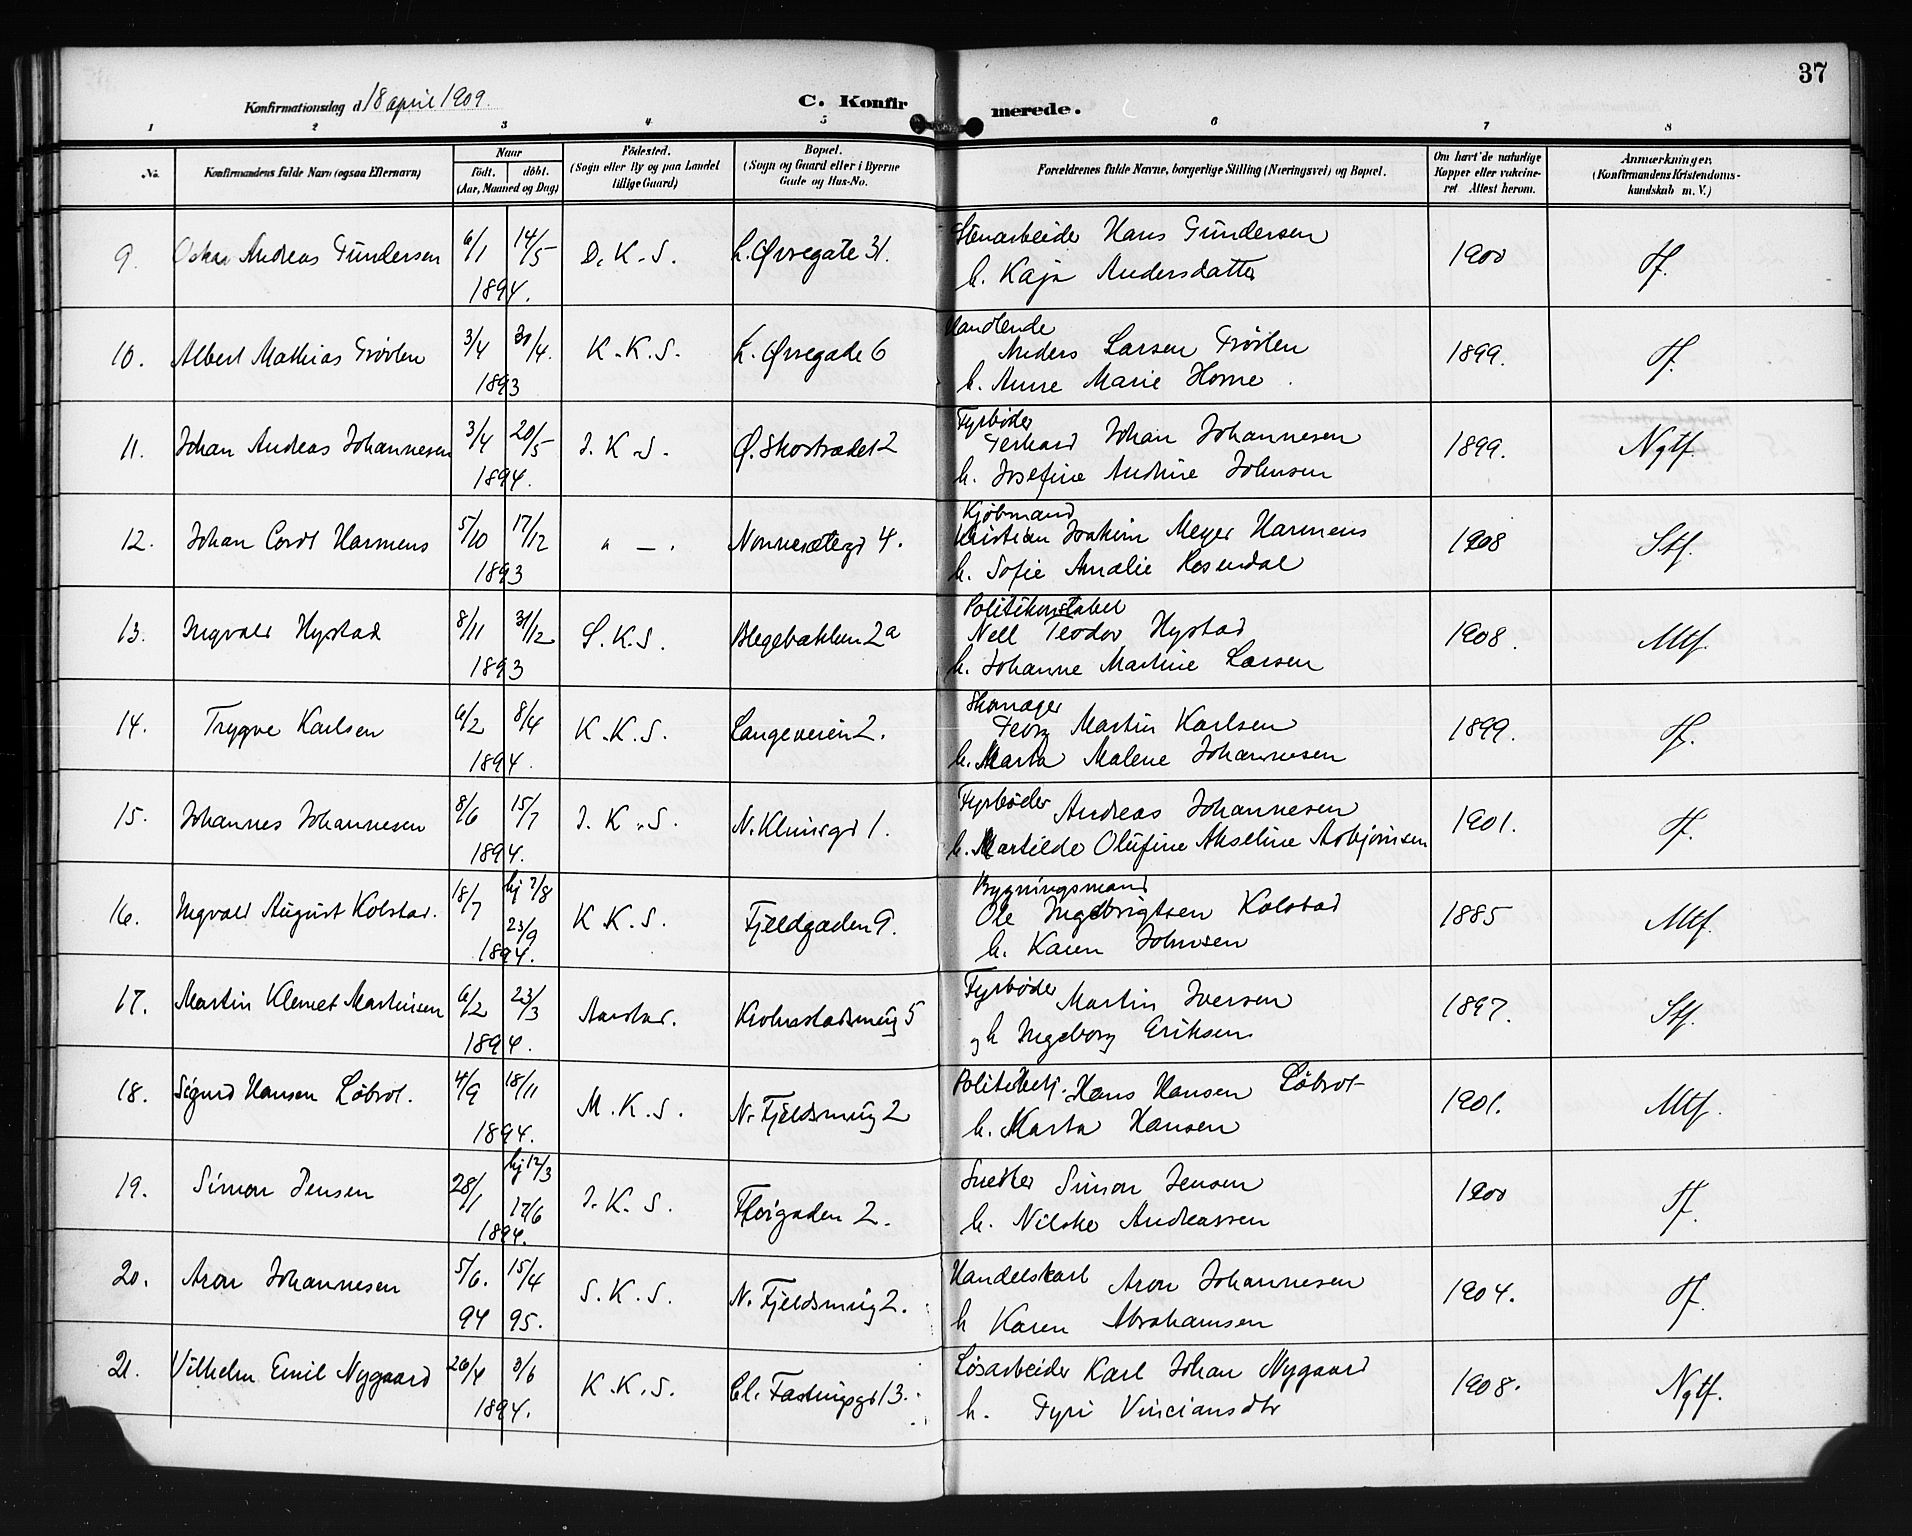 37
Konfirmationsdag d. 18 april 1909.
C. Konfirmerede.
1 2 3 4 5 6 7 8
No.
Konfirmandens fulde Navn (ogsaa Efternavn)
Naar
født. døbt.
(Aar, Maaned og Dag)
Fødested.
(Sogn eller By og paa Landet
tillige Gaard)
Bopæl.
(Sogn og Gaard eller i Byerne
Gade og Hus-No.
Forældrenes fulde Navne, borgerlige Stilling (Næringsvei) og Bopæl.
Om havt de naturlige
Kopper eller vakcine-
ret Attest herom.
Anmærkninger.
(Konfirmandens Kristendoms-
kundskab m. V.)
9. Oskar Andreas Gundersen 6/1 14/5 1894. D. K. S. L. Øvregate 31.
Stenarbeider Hans Gundersen
h. Kaja Andersdatter
1900 Tf.
10. Albert Mathias Frøvlen 3/4 30/4. 1893 K. K. S. L. Øvregade 6
Handlende
Anders Larsen Frøvlen
h. Anne Marie Horne.
1899. Tf.
11. Johan Andreas Johannesen 3/4 20/5 1894. J. K. S. Ø. Skostrædet 2
Fyrbøder
Gerhard Johan Johannesen
h. Josefine Andrine Johnsen
1899. Ngtf.
12. Johan Cordt Harmens 5/10 17/12 1893 " — . Nonnesætergt 4.
Kjøbmand
Kristian Joakim Meyer Harmens
h. Sofie Amalie Rosendal
1908 Stf.
13. Ingvald Hystad 8/11 31/12 1893 S. K. S. Blegebakken 2a
Politikonstabel
Nell Teodor Hystad
h. Johanne Martine Larsen
1908. Mtf.
14. Trygve Karlsen 6/2 8/4 1894. K. K. S. Langeveien 2.
Skomager
Georg Martin Karlsen
h. Marta Malene Johannesen
1899. Tf.
15. Johannes Johannesen 8/6 15/7 1894. J. K. S. N. Kleivegt 1.
Fyrbøder Andreas Johannesen
h. Martilde Olufine Akseline Asbjørnsen
1901. Tf.
16. Ingvald August Kolstad. 18/7 hj 7/8 23/9 1894. K. K. S. Fjeldgaden 9.
Bygningsmand
Ole Ingebrigtsen Kolstad
h. Karen Johnsen
1885 Mtf.
17. Martin Klemet Martinsen 6/2 23/3 1894. Aarstad. Krohnstadsmug 5
Fyrbøder Martin Iversen
gh Ingeborg Eriksen
1897. Stf.
18. Sigurd Hansen Løbrot. 4/9 18/11 1894. M. K. S. N. Fjeldsmug 2
Politibetj. Hans Hansen Løbrot
h. Marta Hansen
1901. Mtf.
19. Simon Jensen 28/1 hj 12/3 17/6 1894. J. K. S. Fløigaden 2.
Snekker Simon Jensen
h. Nilske Andreassen
1900 Tf.
20. Aron Johannesen 5/6. 94 15/4 95. S. K. S. N. Fjeldsmug 2.
Handelskarl Aron Johannesen
h Karen Abrahamsen
1904. Tf.
21. Vilhelm Emil Nygaard 26/4 3/6 1894. K. K. S. Cl. Fastingsgt 13.
Løsarbeider Karl Johan Nygaard
h. Gyri Vinciansdtr
1908. Ngtf.